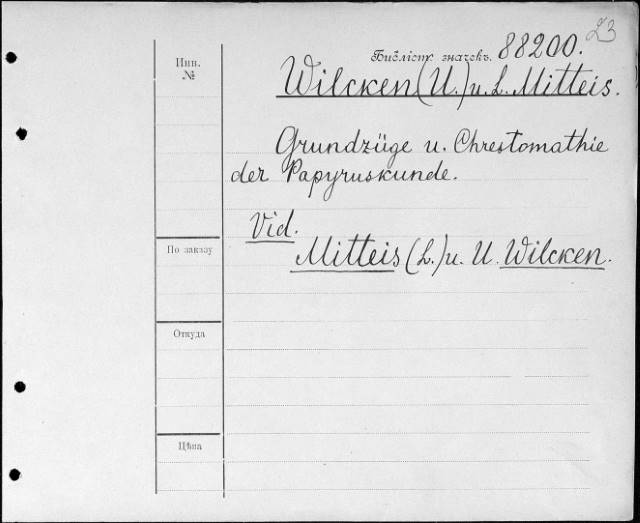 23
Библіотр. значекъ. 88200.
Инв.
№
Wilcken (U.) u. L. Mitteis.
Grundzüge u. Chrestomathie
der Papyruskunde.
Vid.
Mitteis (L.) u. U. Wilcken.
По заказу
Откуда
Цѣна